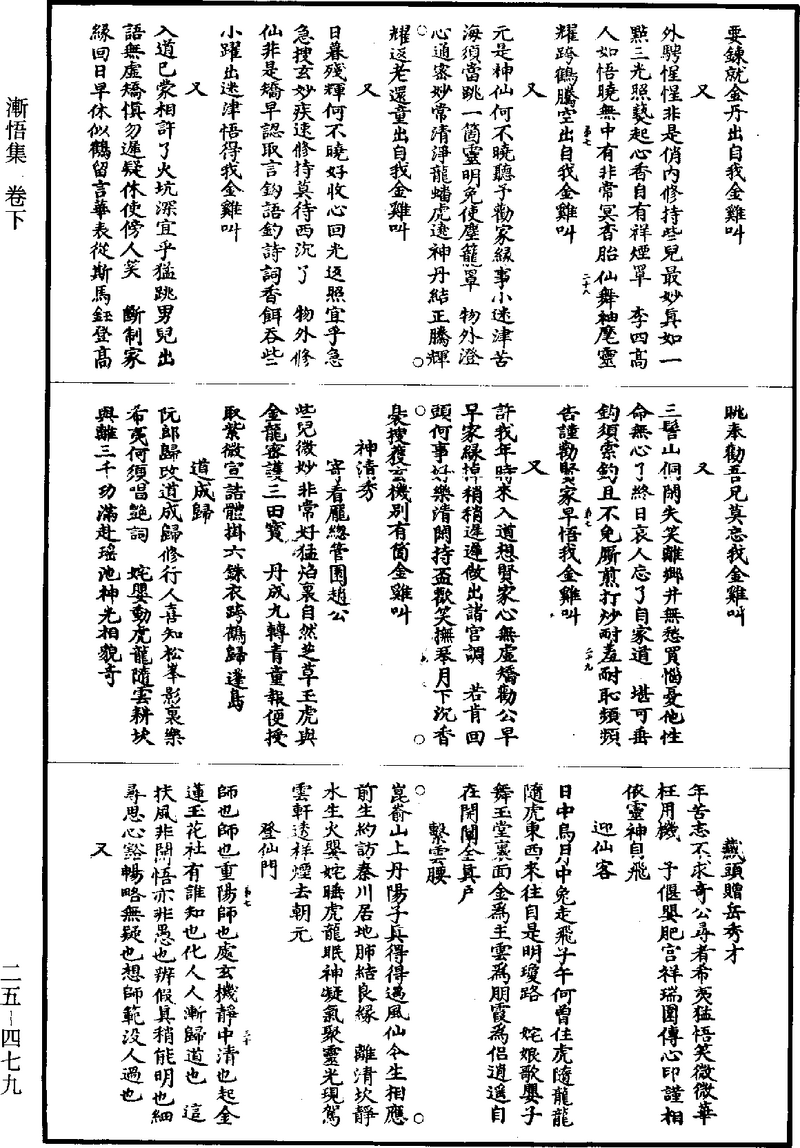 漸悟集 卷下
要鍊就金丹出自我金雞叫
又
外騁惺惺非是俏內修持些兒最妙真如一
點三光照爇起心香自有祥煙罩 李四高
人如悟曉無中有非常冥杳胎仙舞袖麾靈
耀跨鶴騰空出自我金雞叫
又
元是神仙何不曉聽予勸家緣事小迷津苦
海須當跳一箇靈明免使塵籠罩 物外澄
心通密妙常清淨龍蟠虎遶神丹結正騰輝
耀返老還童出自我金雞叫
又
日暮殘輝何不曉好收心回光返照宜乎急
急搜玄妙疾速修持莫待西沉了 物外修
仙非是矯早認取言鈎語釣詩詞香餌吞些
小躍出迷津悟得我金雞叫
又
入道已蒙相許了火坑深宜乎猛跳男兒出
語無虛矯慎勿遲疑休使傍人笑 斷制家
緣回日早休似鶴留言華表從斯馬鈺登高
眺奉勸吾兄莫忘我金雞叫
又
三髻山侗開失笑離鄉井無愁買惱憂他性
命無心了終日哀人忘了自家道 堪可垂
鈎須索釣且不免厮煎打炒耐羞耐恥頻頻
告謹勸賢家早悟我金雞叫
又
許我年時來入道想賢家心無虛矯勸公早
早家緣掉稍稍遲遲做出諸宮調 若肯回
頭何事好樂清閑持盃歡笑撫琴月下沉香
裊搜獲玄機別有箇金雞叫
神清秀
寄看龐總管園趙公
些兒微妙非常好猛焰裏自然芝草玉虎與
金龍密護三田寶 丹成九轉青童報便授
取紫微宣誥體掛六銖衣跨鶴歸蓬島
道成歸
阮郎歸改道成歸修行人喜知松峯影裏樂
希夷何須唱艷詞 姹嬰動虎龍隨雲耕坎
與離三千功滿赴瑤池神光相貌奇
藏頭贈岳秀才
年苦志不求奇公尋者希夷猛悟笑微微華
枉用機 子偃嬰肥宮祥瑞圍傳心印謹相
依靈神自飛
迎仙客
日中烏月中兔走飛子午何曾住虎隨龍龍
隨虎東西來往自是明瓊路 姹娘歌嬰子
舞玉堂裏面金爲主雲爲朋霞爲侶逍遥自
在開闡全真户
繫雲腰
崑崙山上丹陽子真得得遇風仙今生相應
前生約訪秦川居地肺結良緣 離清坎靜
水生火嬰姹睡虎龍眠神凝氣聚靈光現駕
雲軒透祥煙去朝元
登仙門
師也師也重陽師也處玄機靜中清也起金
蓮玉花社有誰知也化人人漸歸道也 這
扶風非開悟亦非愚也辨假真稍能明也細
尋思心豁暢略無疑也想師範没人過也
又
二五—四七九